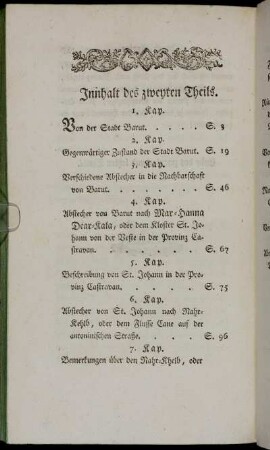 Innhalt des zweyten Theils.
1. Kap.
Von der Stadt Barut. . . . . S. 3
2. Kap.
Gegenwärtiger Zustand der Stadt Barut. S. 19
3. Kap.
Verschiedene Abstecher in die Nachbarschaft
von Barut. . . . . . . S. 46
4. Kap.
Abstecher von Barut nach Mar-Hanna
Dear-Kala, oder dem Kloster St. Jo-
hann von der Veste in der Provinz Ca-
stravan. . . . . . . S. 67
5. Kap.
Beschreibung von St. Johann in der Pro-
vinz Castravan. . . . . S. 75
6. Kap.
Abstecher von St. Johann nach Nahr-
Kehlb, oder dem Flusse Cane auf der
antoninischen Straße. . . . S. 96
7. Kap.
Bemerkungen über den Nahr-Khelb, oder